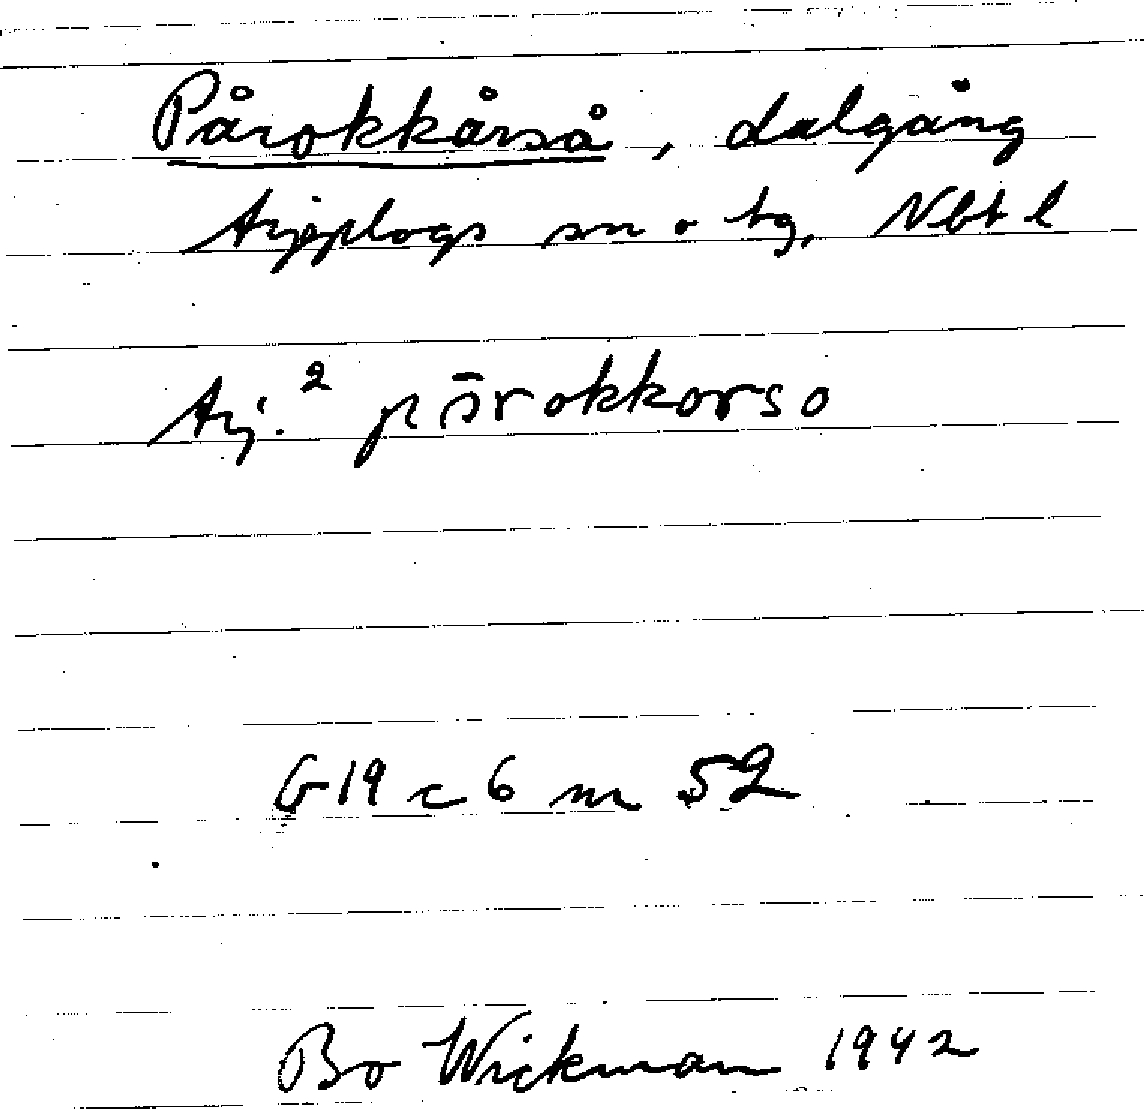 Pårokkårså, dalgång
Arjeplogs sn o tg, Nbt l
Arj.² pōrokkorso
G19 c 6 nr 52
Bo Wickman 1942